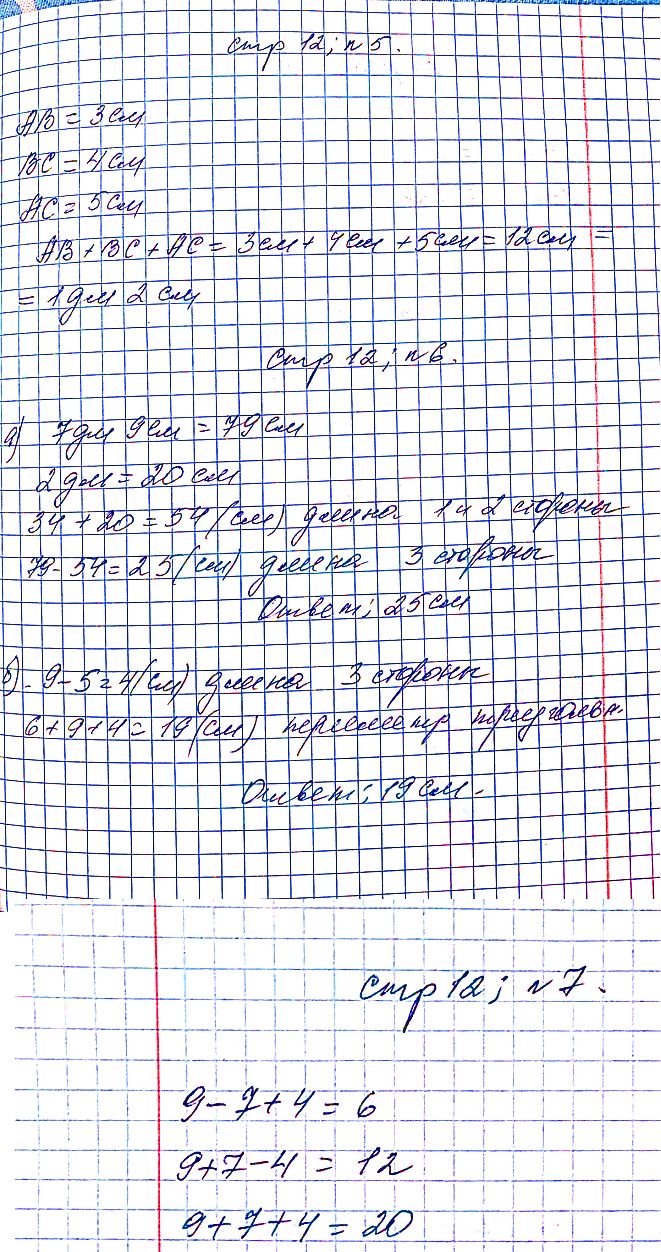 стр 12; н 5.
AB = 3 см
BC = 4 см
AC = 5 см
AB + BC + AC = 3 см + 4 см + 5 см = 12 см =
= 1 дм 2 см
стр 12; н 6.
а) 7 дм 9 см = 79 см
2 дм = 20 см
34 + 20 = 54 (см) длина 1 и 2 стороны
79 - 54 = 25 (см) длина 3 стороны
Ответ; 25 см
б) 9 - 5 = 4 (см) длина 3 стороны
6 + 9 + 4 = 19 (см) периметр треугольн.
Ответ; 19 см.
стр 12; н 7.
9 - 7 + 4 = 6
9 + 7 - 4 = 12
9 + 7 + 4 = 20